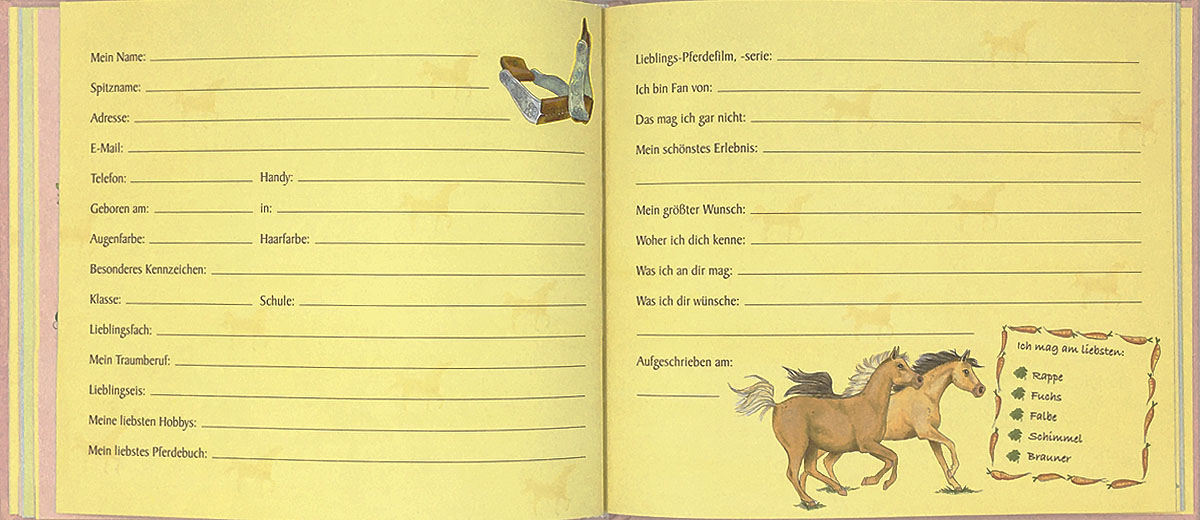 Mein Name:
Spitzname:
Adresse:
E-Mail:
Telefon: Handy:
Geboren am: in:
Augenfarbe: Haarfarbe:
Besonderes Kennzeichen:
Klasse: Schule:
Lieblingsfach:
Mein Traumberuf:
Lieblingseis:
Meine liebsten Hobbys:
Mein liebstes Pferdebuch:
Lieblings-Pferdefilm, -serie:
Ich bin Fan von:
Das mag ich gar nicht:
Mein schönstes Erlebnis:
Mein größter Wunsch:
Woher ich dich kenne:
Was ich an dir mag:
Was ich dir wünsche:
Aufgeschrieben am:
Ich mag am liebsten:
Rappe
Fuchs
Falbe
Schimmel
Brauner